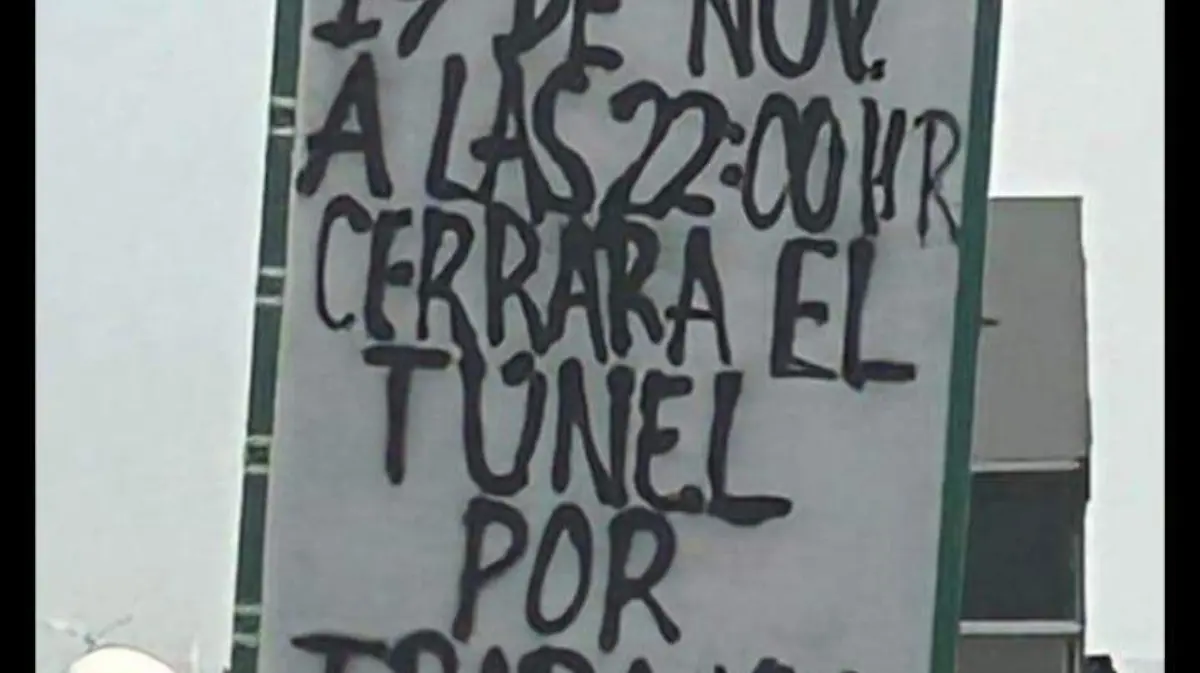 DE NOV.
A LAS 22:00 HR
CERRARA EL
TUNEL
POR